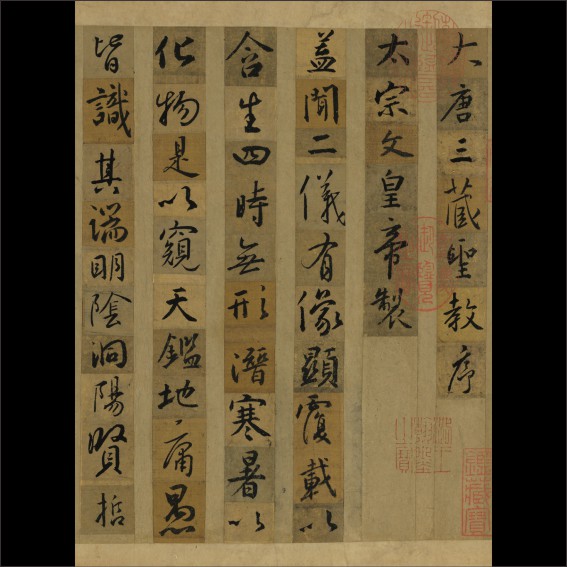 大唐三藏聖教序
太宗文皇帝製
蓋聞二儀有像顯覆載以
含生四時無形潛寒暑以
化物是以窺天鑑地庸愚
皆識其端明陰洞陽賢哲